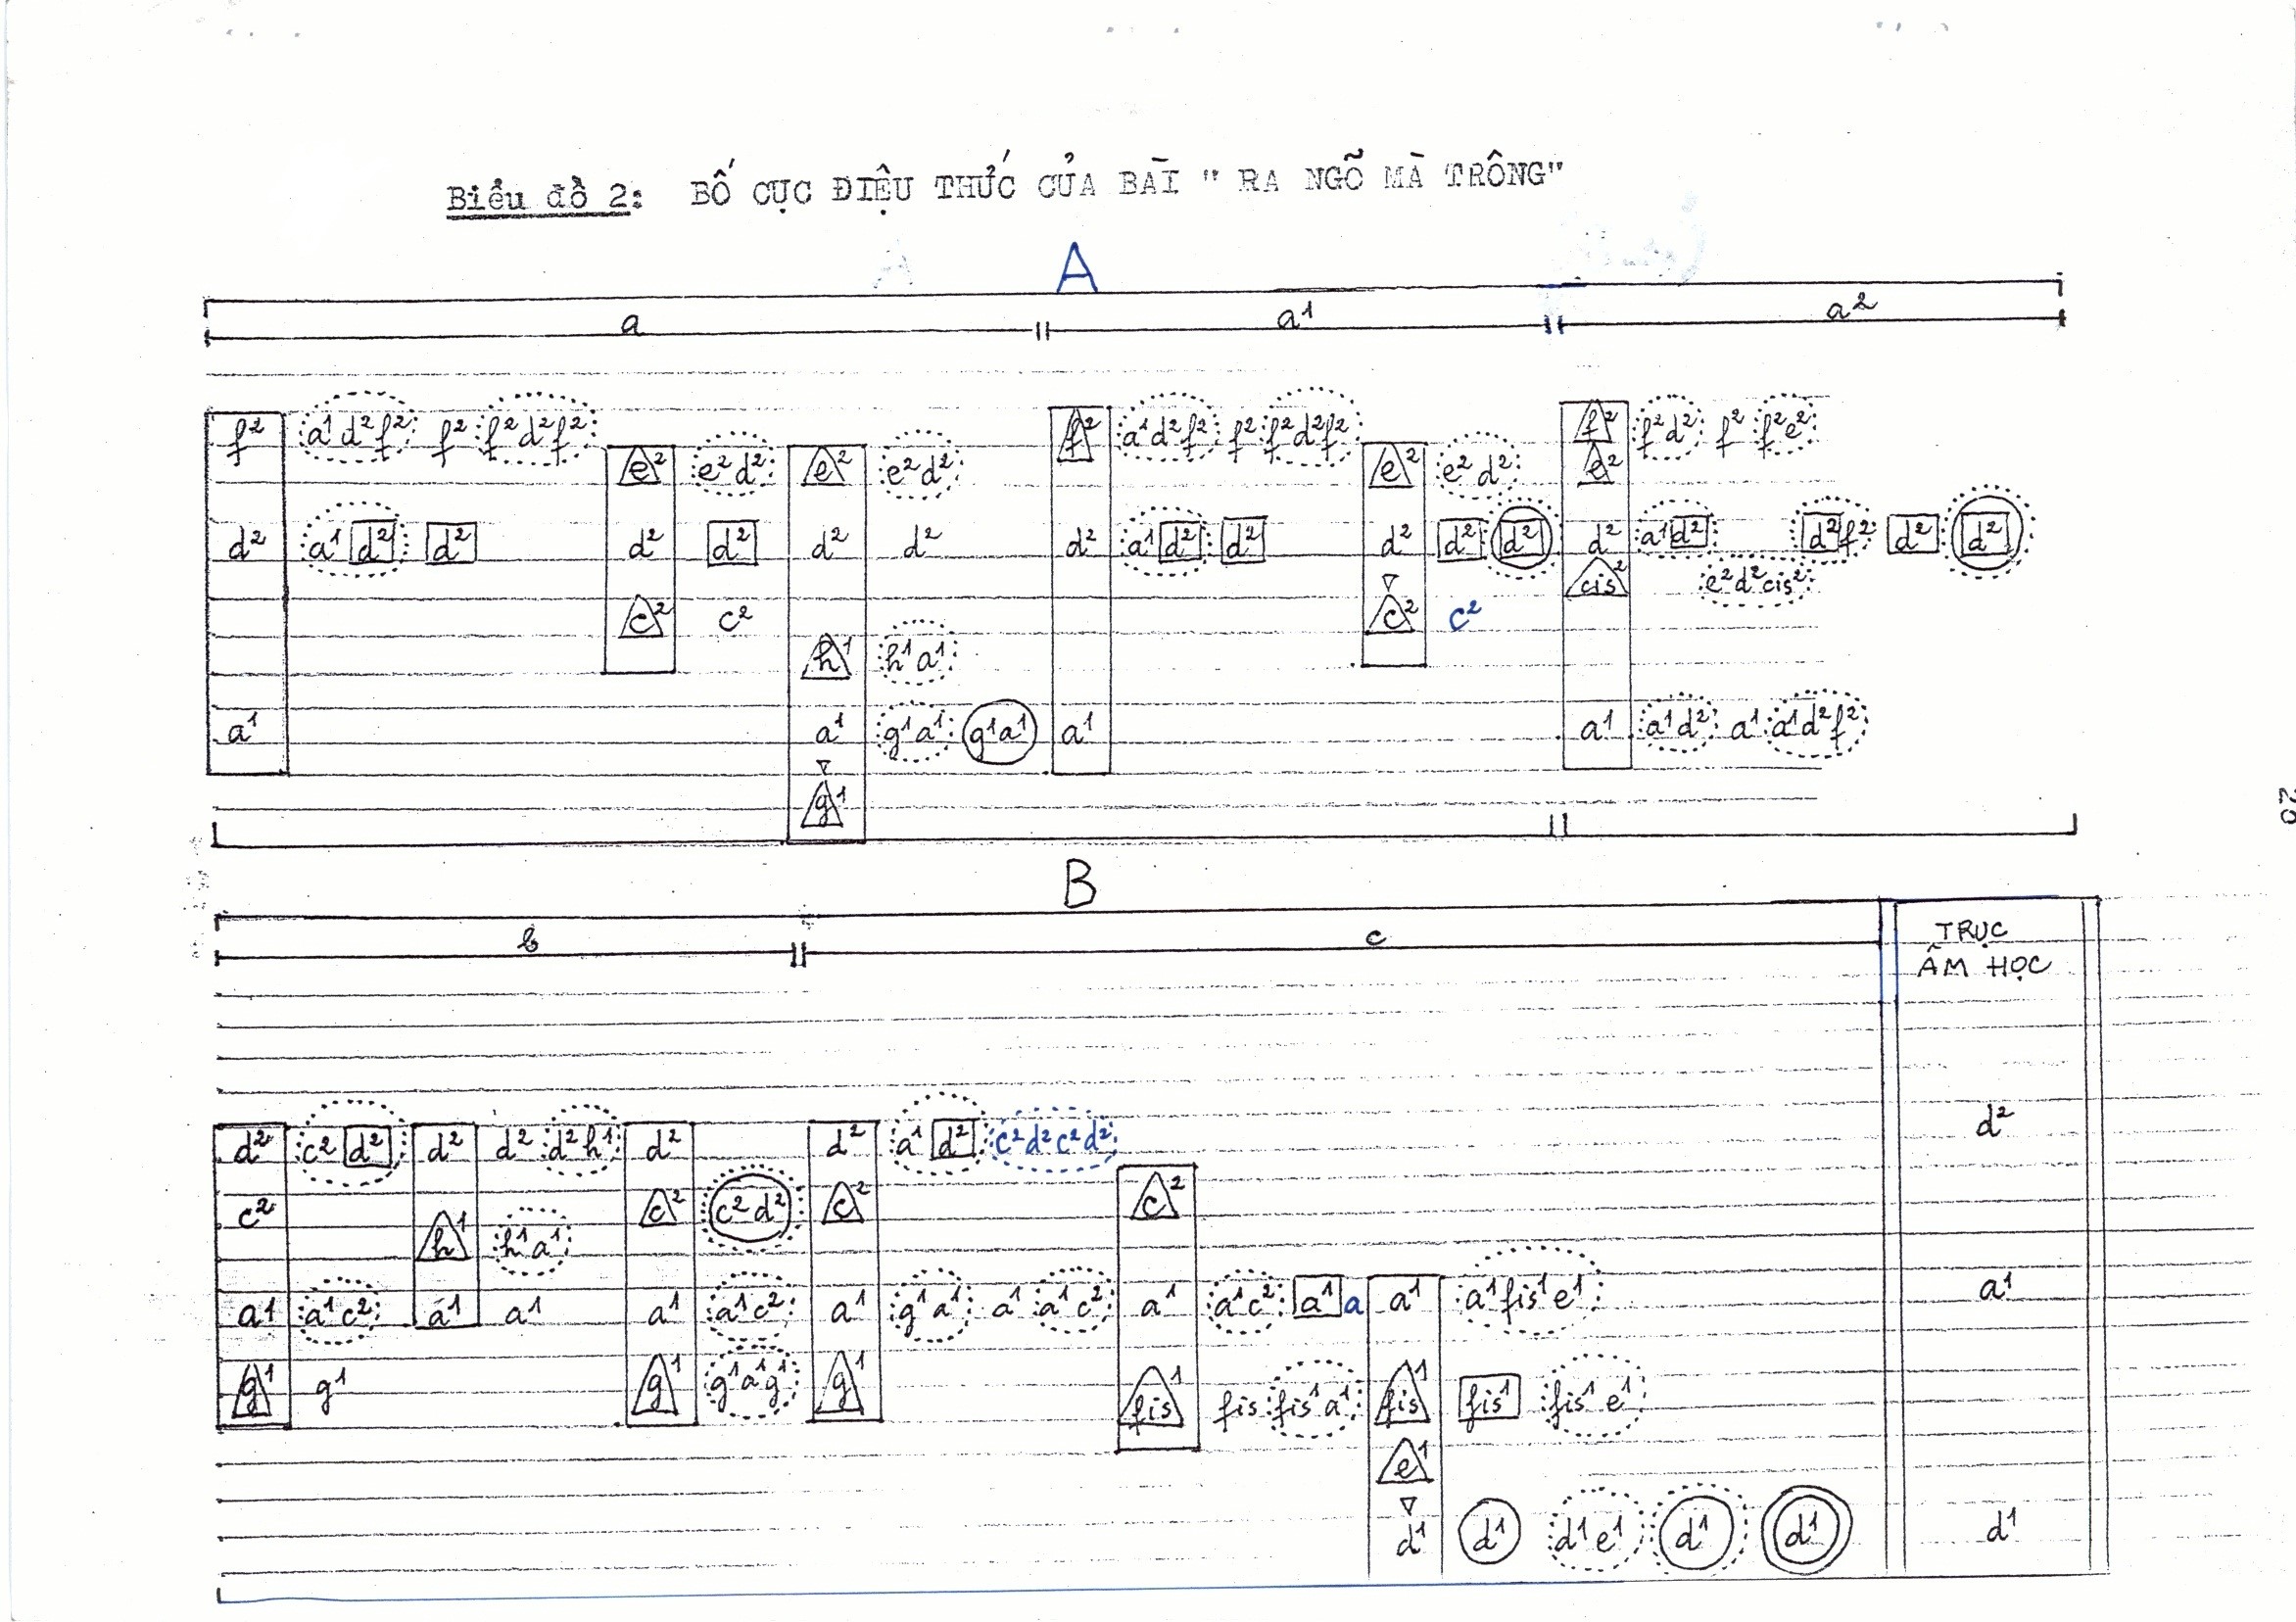 Biểu đồ 2: BỐ CỤC ĐIỆU THỨC CỦA BÀI " RA NGÕ MÀ TRÔNG"
A
a a¹ a²
f² a¹d²f² f² f²d²f² f² a¹d²f² f² f²d²f² f² f²d² f² f²e²
e² e²d² e² e²d² e² e²d² e²
d² a¹ d² d² d² d² d² d² d² a¹ d² d² d² d² d² d² a¹ d² d² f² d² d²
cis² e²d²cis²
c² c² c² c²
h¹ h¹a¹
a¹ a¹ g¹a¹ g¹a¹ a¹ a¹ a¹d² a¹ a¹d²f²
g¹
B
b c
TRỤC
ÂM HỌC
d² c² d² d² d² d²h¹ d² d² a¹ d² c²d²c²d² d²
c² c² c²d² c² c²
h¹ h¹a¹
a¹ a¹c² a¹ a¹ a¹ a¹c² a¹ g¹a¹ a¹ a¹c² a¹ a¹c² a¹ a a¹ a¹fis¹e¹ a¹
g¹ g¹ g¹ g¹a¹g¹ g¹ fis¹ fis fis¹a¹ fis¹ fis¹ fis¹e¹
e¹
d¹ d¹ d¹e¹ d¹ d¹ d¹